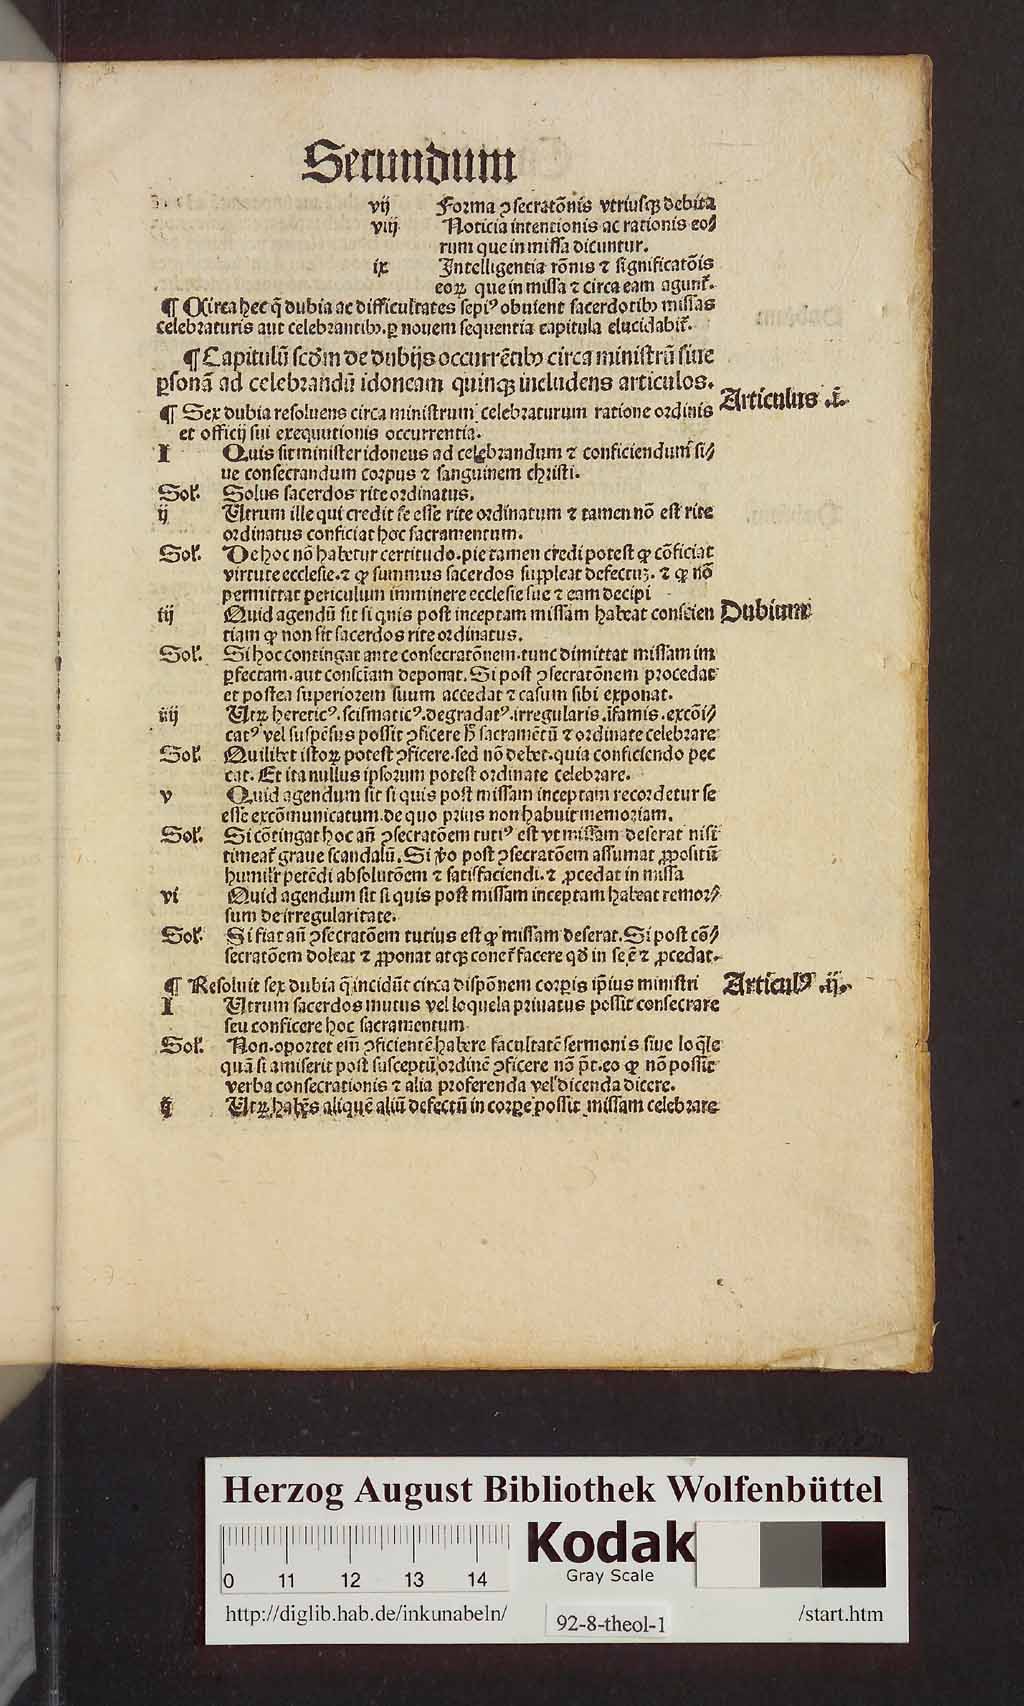 Secundum
vij Forma ↄsecratōnis vtriusqꝫ debita
viij Noticia intentionis ac rationis eo⸗
rum que in missa dicuntur.
ix Intelligentia rōnis ⁊ significatōis
eoꝝ que in missa ⁊ circa eam agunt᷑.
¶ Circa hec q̄ dubia ac difficultates sepiꝰ obuient sacerdotibꝰ missas
celebraturis aut celebrantibꝰ. ꝑ nouem sequentia capitula elucidabit᷑.
¶ Capitulū scd̄m de dubijs occurrētibꝰ circa ministrū siue
ꝑsonā ad celebrandū idoneam quinqꝫ includens articulos.
Articulus .i.
¶ Sex dubia resoluens circa ministrum celebraturum ratione ordinis
et officij sui exequutionis occurrentia.
I Quis sit minister idoneus ad celebrandum ⁊ conficiendum si⸗
ue consecrandum corpus ⁊ sanguinem christi.
Sol᷑. Solus sacerdos rite ordinatus.
ij Utrum ille qui credit se esse rite ordinatum ⁊ tamen nō est rite
ordinatus conficiat hoc sacramentum.
Sol᷑. De hoc nō habetur certitudo. pie tamen credi potest ꝙ cōficiat
virtute ecclesie. ⁊ ꝙ summus sacerdos suppleat defectuꝫ. ⁊ ꝙ nō
permittat periculum imminere ecclesie sue ⁊ eam decipi
iij Quid agendū sit si quis post inceptam missam habeat conscien
Dubium
tiam ꝙ non sit sacerdos rite ordinatus.
Sol᷑. Si hoc contingat ante consecratōnem. tunc dimittat missam im
ꝑfectam. aut consciam deponat. Si post ↄsecratōnem procedat
et postea superiorem suum accedat ⁊ casum sibi exponat.
iiij Utꝝ hereticꝰ. scismaticꝰ. degradatꝰ. irregularis. īfamis. excōi⸗
catꝰ vel suspēsus possit ↄficere h̄ sacramētū ⁊ ordinate celebrare
Sol᷑. Quilibet istoꝝ potest ↄficere. sed nō debet. quia conficiendo pec
cat. Et ita nullus ipsorum potest ordinate celebrare.
v Quid agendum sit si quis post missam inceptam recordetur se
esse excōmunicatum. de quo prius non habuit memoriam.
Sol᷑. Si cōtingat hoc an̄ ↄsecratōem tutiꝰ est vt missam deserat nisi
timeat᷑ graue scandalū. Si ꝟo post ↄsecratōem assumat ꝓpositū
humilr̄ petēdi absolutōem ⁊ satisfaciendi. ⁊ ꝓcedat in missa
vi Quid agendum sit si quis post missam inceptam habeat remor⸗
sum de irregularitate.
Sol᷑. Si fiat an̄ ↄsecratōem tutius est ꝙ missam deserat. Si post cō⸗
secratōem doleat ⁊ ꝓponat atqꝫ conet᷑ facere qd̄ in se ē ⁊ ꝓcedat.
¶ Resoluit sex dubia q̄ incidūt circa dispōnem corpis ip̄ius ministri
Articulꝰ .ij.
I Utrum sacerdos mutus vel loquela priuatus possit consecrare
seu conficere hoc sacramentum
Sol᷑. Non. oportet em̄ ↄficientē habere facultatē sermonis siue loq̄le
quā si amiserit post susceptū ordinē ↄficere nō p̄t. eo ꝙ nō possit
verba consecrationis ⁊ alia proferenda vel dicenda dicere.
ij Utꝝ habēs aliquē aliū defectū in corꝑe possit missam celebrare
Herzog August Bibliothek Wolfenbüttel
0 11 12 13 14
Kodak
Gray Scale
http://diglib.hab.de/inkunabeln/
92-8-theol-1
/start.htm